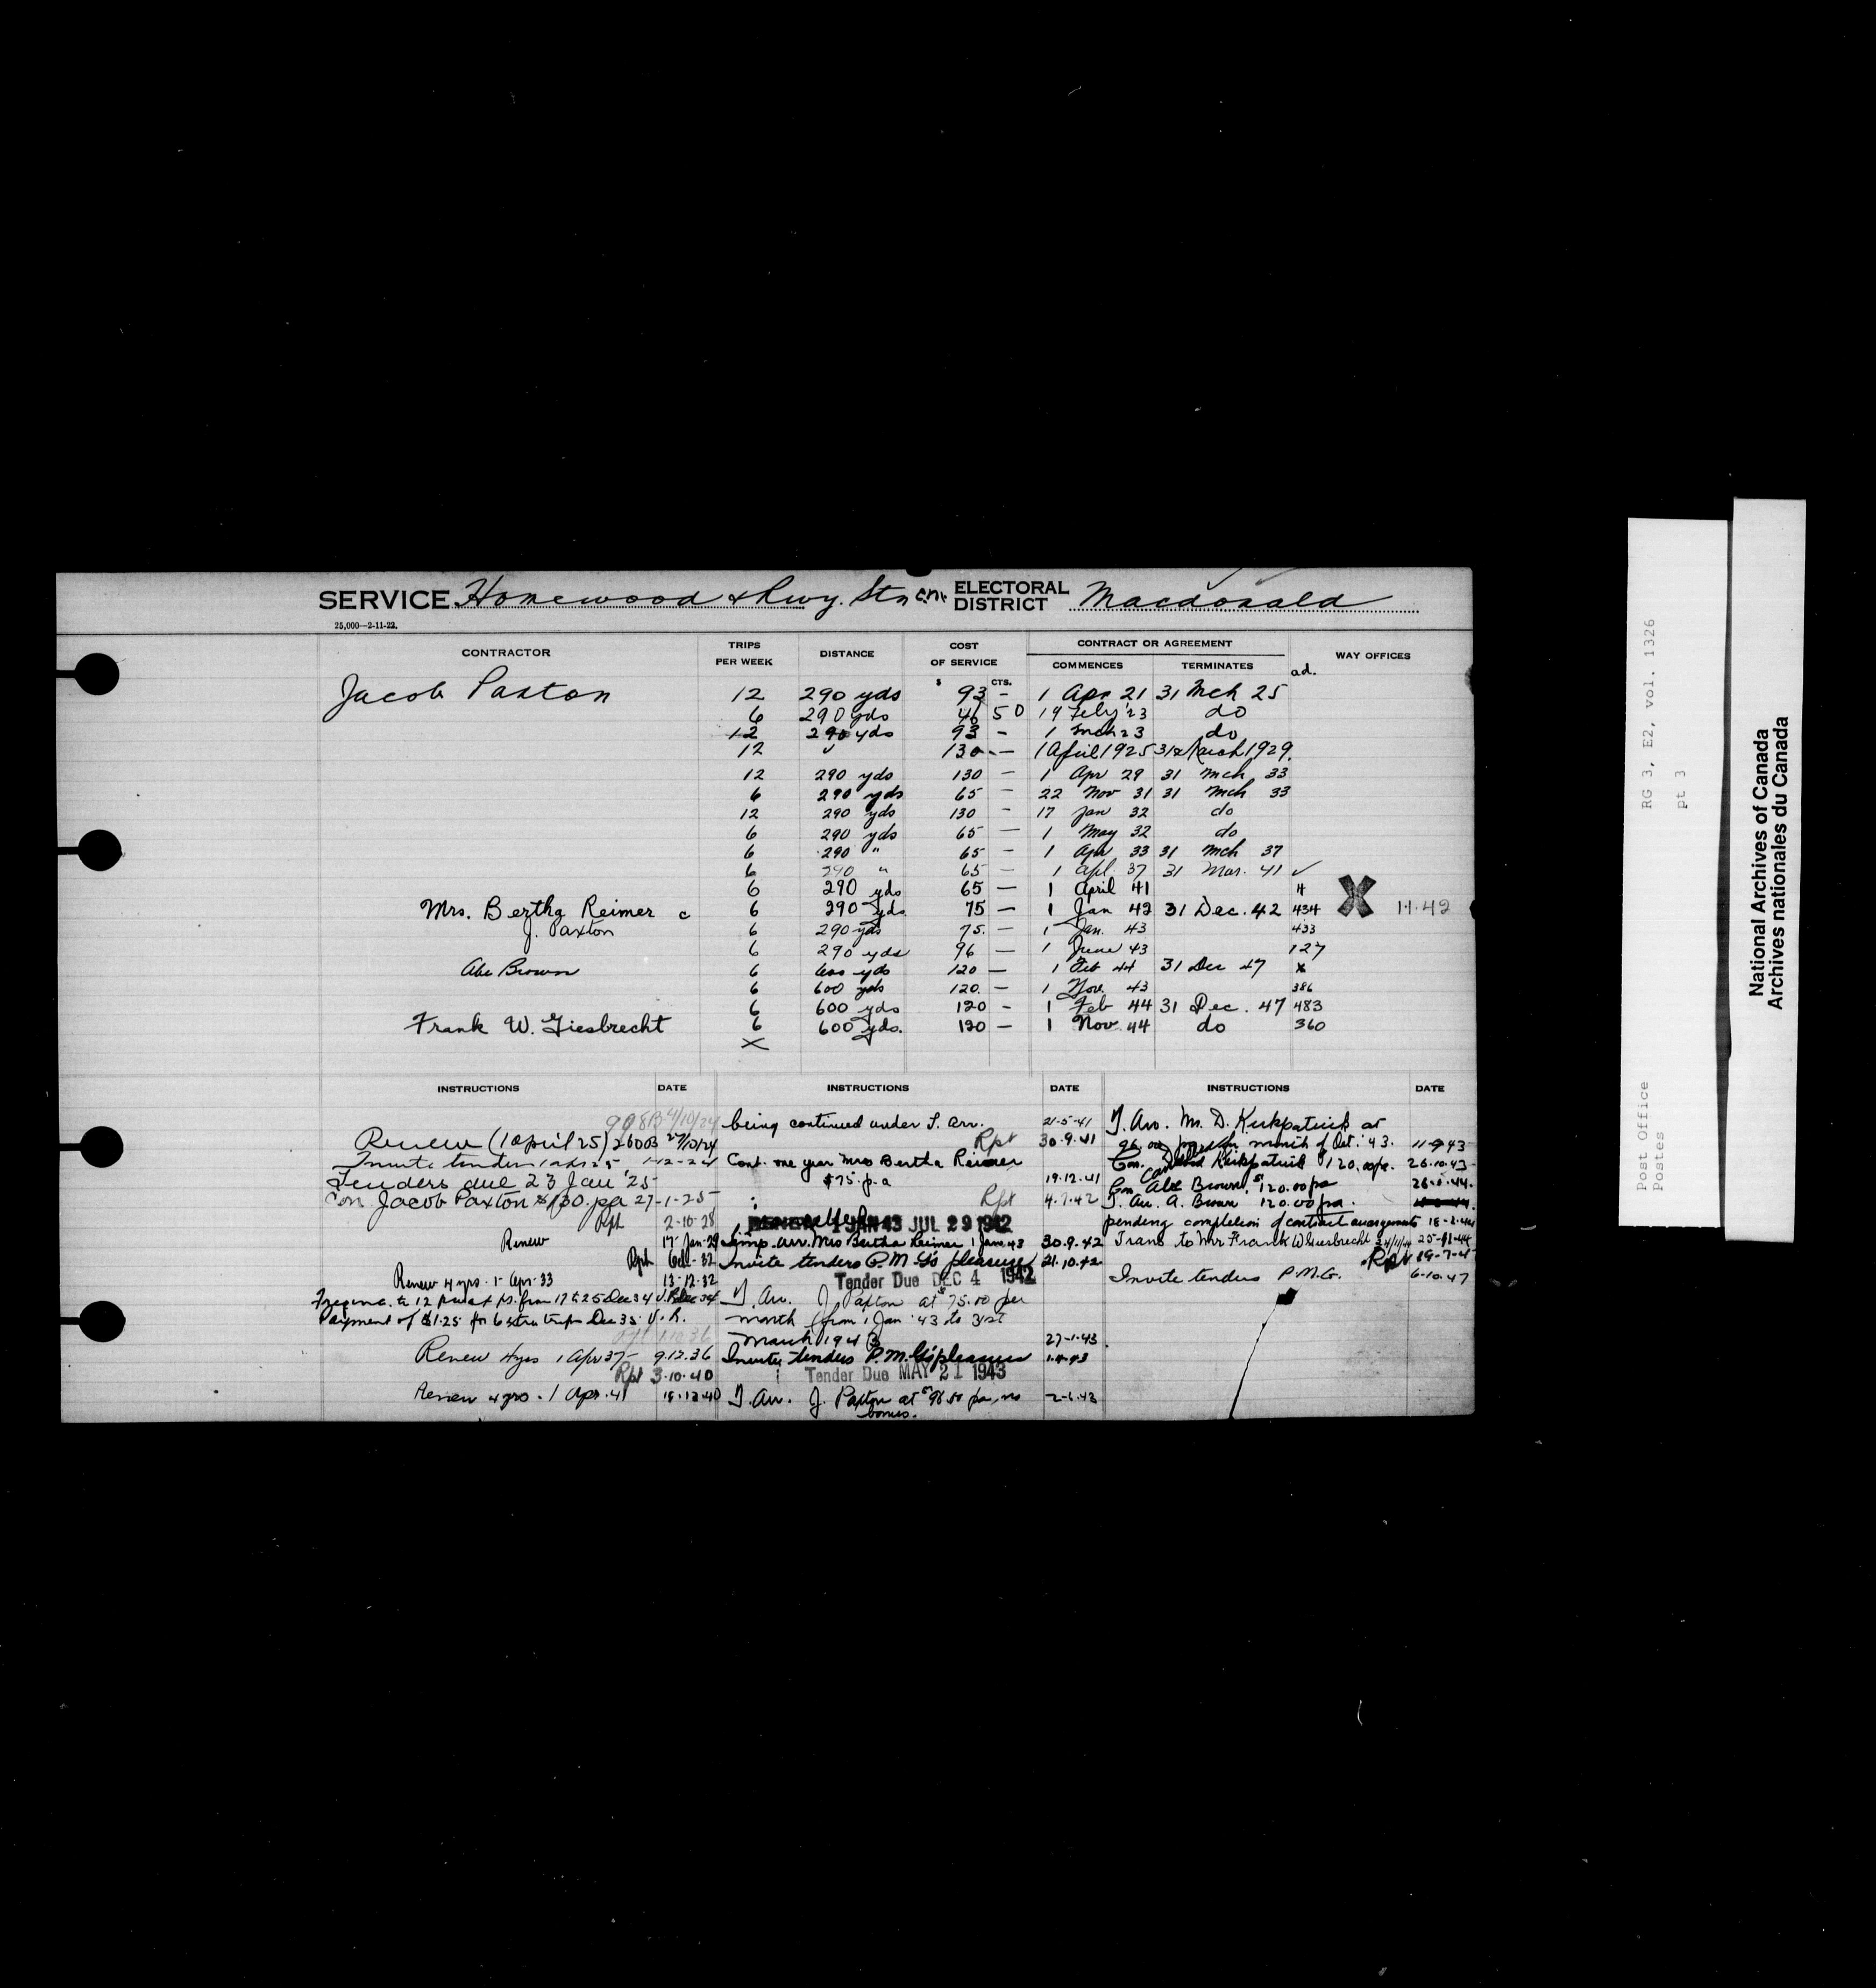 SERVICE Homewood & Rwy. Stn C.N. ELECTORAL DISTRICT Macdonald
25,000—2-11-22.
CONTRACTOR TRIPS PER WEEK DISTANCE COST OF SERVICE CONTRACT OR AGREEMENT WAY OFFICES
COMMENCES TERMINATES ad.
$ CTS.
Jacob Paxton 12 290 yds 93 - 1 Apr 21 31 Mch 25
6 290 yds 46 50 19 Feby '23 do
12 290 yds 93 - 1 Mch 23 do
12 130 - 1 April 1925 31st March 1929.
12 290 yds 130 — 1 Apr 29 31 Mch 33
6 290 yds 65 — 22 Nov 31 31 Mch 33
12 290 yds 130 - 17 Jan 32 do
6 290 yds 65 — 1 May 32 do
6 290 " 65 — 1 Apr 33 31 Mch 37
6 290 " 65 — 1 Apl. 37 31 Mar. 41 ✓
6 290 yds 65 — 1 April 41 H
Mrs. Bertha Reimer c 6 290 yds. 75 — 1 Jan 42 31 Dec. 42 434 X 1·1·42
J. Paxton 6 290 yds 75. — 1 Jan. 43 433
6 290 yds 96 — 1 June 43 127
Abe Brown 6 600 yds 120 — 1 Feb 44 31 Dec 47 x
6 600 yds 120. — 1 Nov. 43 386
6 600 yds 120 - 1 Feb 44 31 Dec. 47 483
Frank W. Giesbrecht 6 600 yds. 120 — 1 Nov. 44 do 360
X
INSTRUCTIONS DATE
908B 4/10/24
Renew (1 April 25) 2600B 27/10/24
Invite tenders 1 Apl 25 1-12-24
Tenders due 23 Jan '25
Con. Jacob Paxton $130. pa 27-1-25
Rpt 2-10-28
Renew 17-Jan-29
Rpt Oct-32
Renew 4 yrs. 1- Apr-33 13-12-32
Frequnc. to 12 from 17 to 25 Dec 34
Payment of $1.25 for 6 extra trips Dec 35
Renew 4 yrs 1 Apr 37- 9.12.36
Rpt 3.10.40
Renew 4 yrs. 1 Apr. 41 18.12.40
INSTRUCTIONS DATE
being continued under T. Arr. 21-5-41
Rpt 30.9.41
Cont. one year Mrs Bertha Reimer
$75. p.a 19.12.41
Rpt 4.7.42
RENEW 1 JAN 43 JUL 29 1942
Temp. arr. Mrs Bertha Reimer 1 Jan. 43 30.9.42
Invite tenders P.M.G's pleasure 21.10.42
Tender Due DEC 4 1942
T. Arr. J. Paxton at $75.00 per
month from 1 Jan '43 to 31st
March 1943 27-1-43
Invite tenders P.M.G's pleasure 1.4.43
Tender Due MAY 21 1943
T. Arr. J. Paxton at $96.00 pa, no
bonus. 2-6-43
INSTRUCTIONS DATE
T. Arr. Mr. D. Kirkpatrick at
96.00 pa for month of Oct. '43. 11-9-43
Con. David Kirkpatrick $120.00 pa. 26.10.43
Con. Abe Brown, $120.00 pa 26-1-44.
T. Arr. A. Brown 120.00 pa.
pending completion of contract arrangements 18-2-44
Trans to Mr Frank W Giesbrecht 25-11-44
Rpt 19-7-4
Invite tenders P.M.G. 6-10.47
Post Office RG 3, E2, vol. 1326
Postes pt 3
National Archives of Canada
Archives nationales du Canada